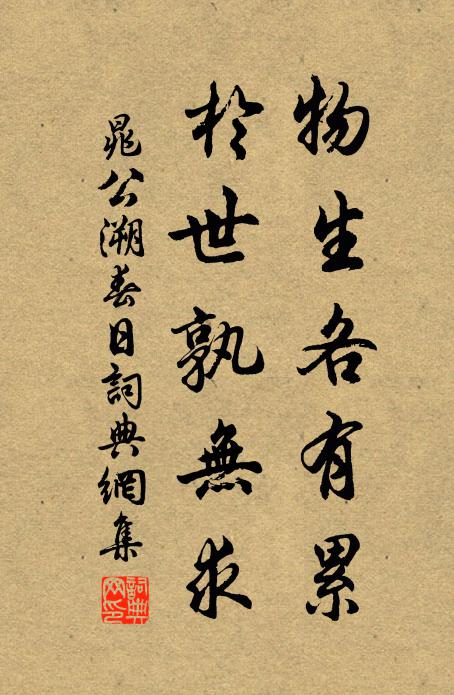 物生各有累
於世孰無求
晁公溯春日詞典網集
詞典網印